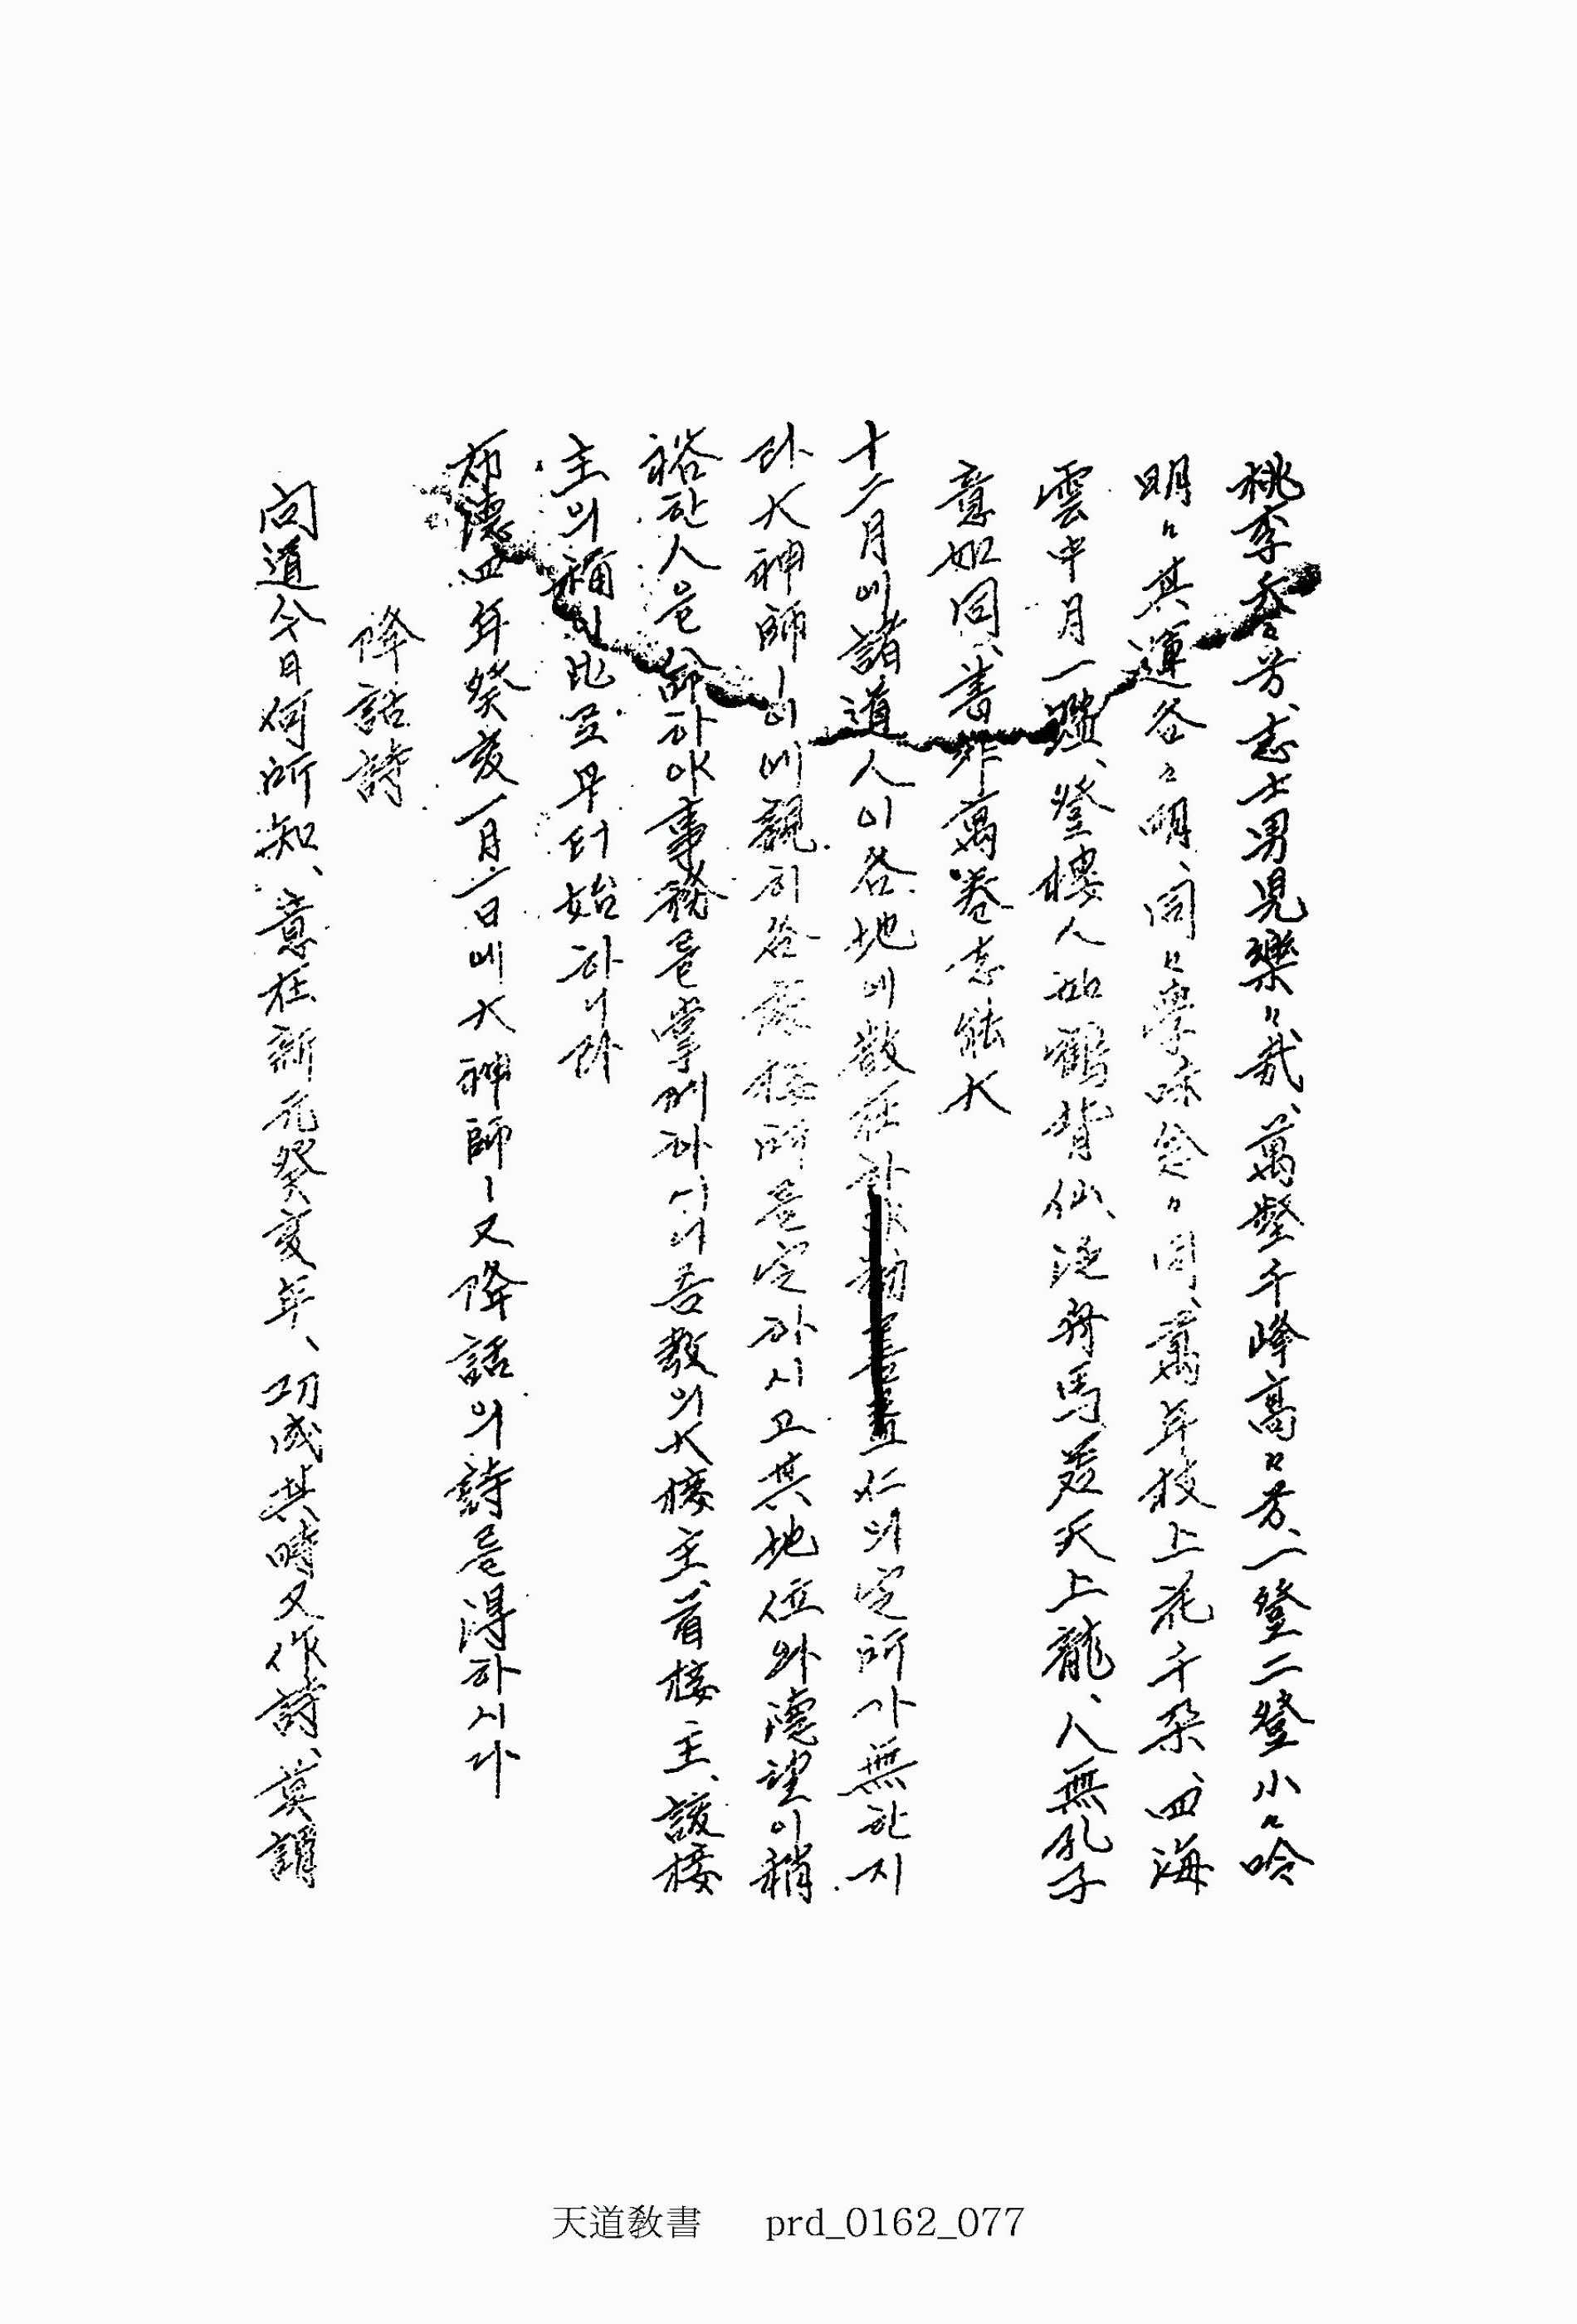 桃李夭〻兮、志士男兒樂〻哉、萬壑千峰高〻兮、一登二登小〻吟
明〻其運各〻明、同〻學味念〻同、萬年枝上花千朶、四海
雲中月一鑑、登樓人如鶴背仙、泛舟馬若天上龍、人無孔子
意如同、書非萬卷志能大
十二月에諸道人이各地에散在하야 仁의定所가無한지
라大神師ㅣ이에親히各處接所를定하시고其地位와德望이稍
裕한人을 하야事務를掌케하시니吾敎의大接主、首接主、該接
主의稱이此로부터始하니라
布德四年癸亥一月一日에大神師ㅣ又降話의詩를得하시다
降話詩
問道今日何所知、意在新元癸亥年、功成其時又作詩、莫謂
天道敎書 prd_0162_077